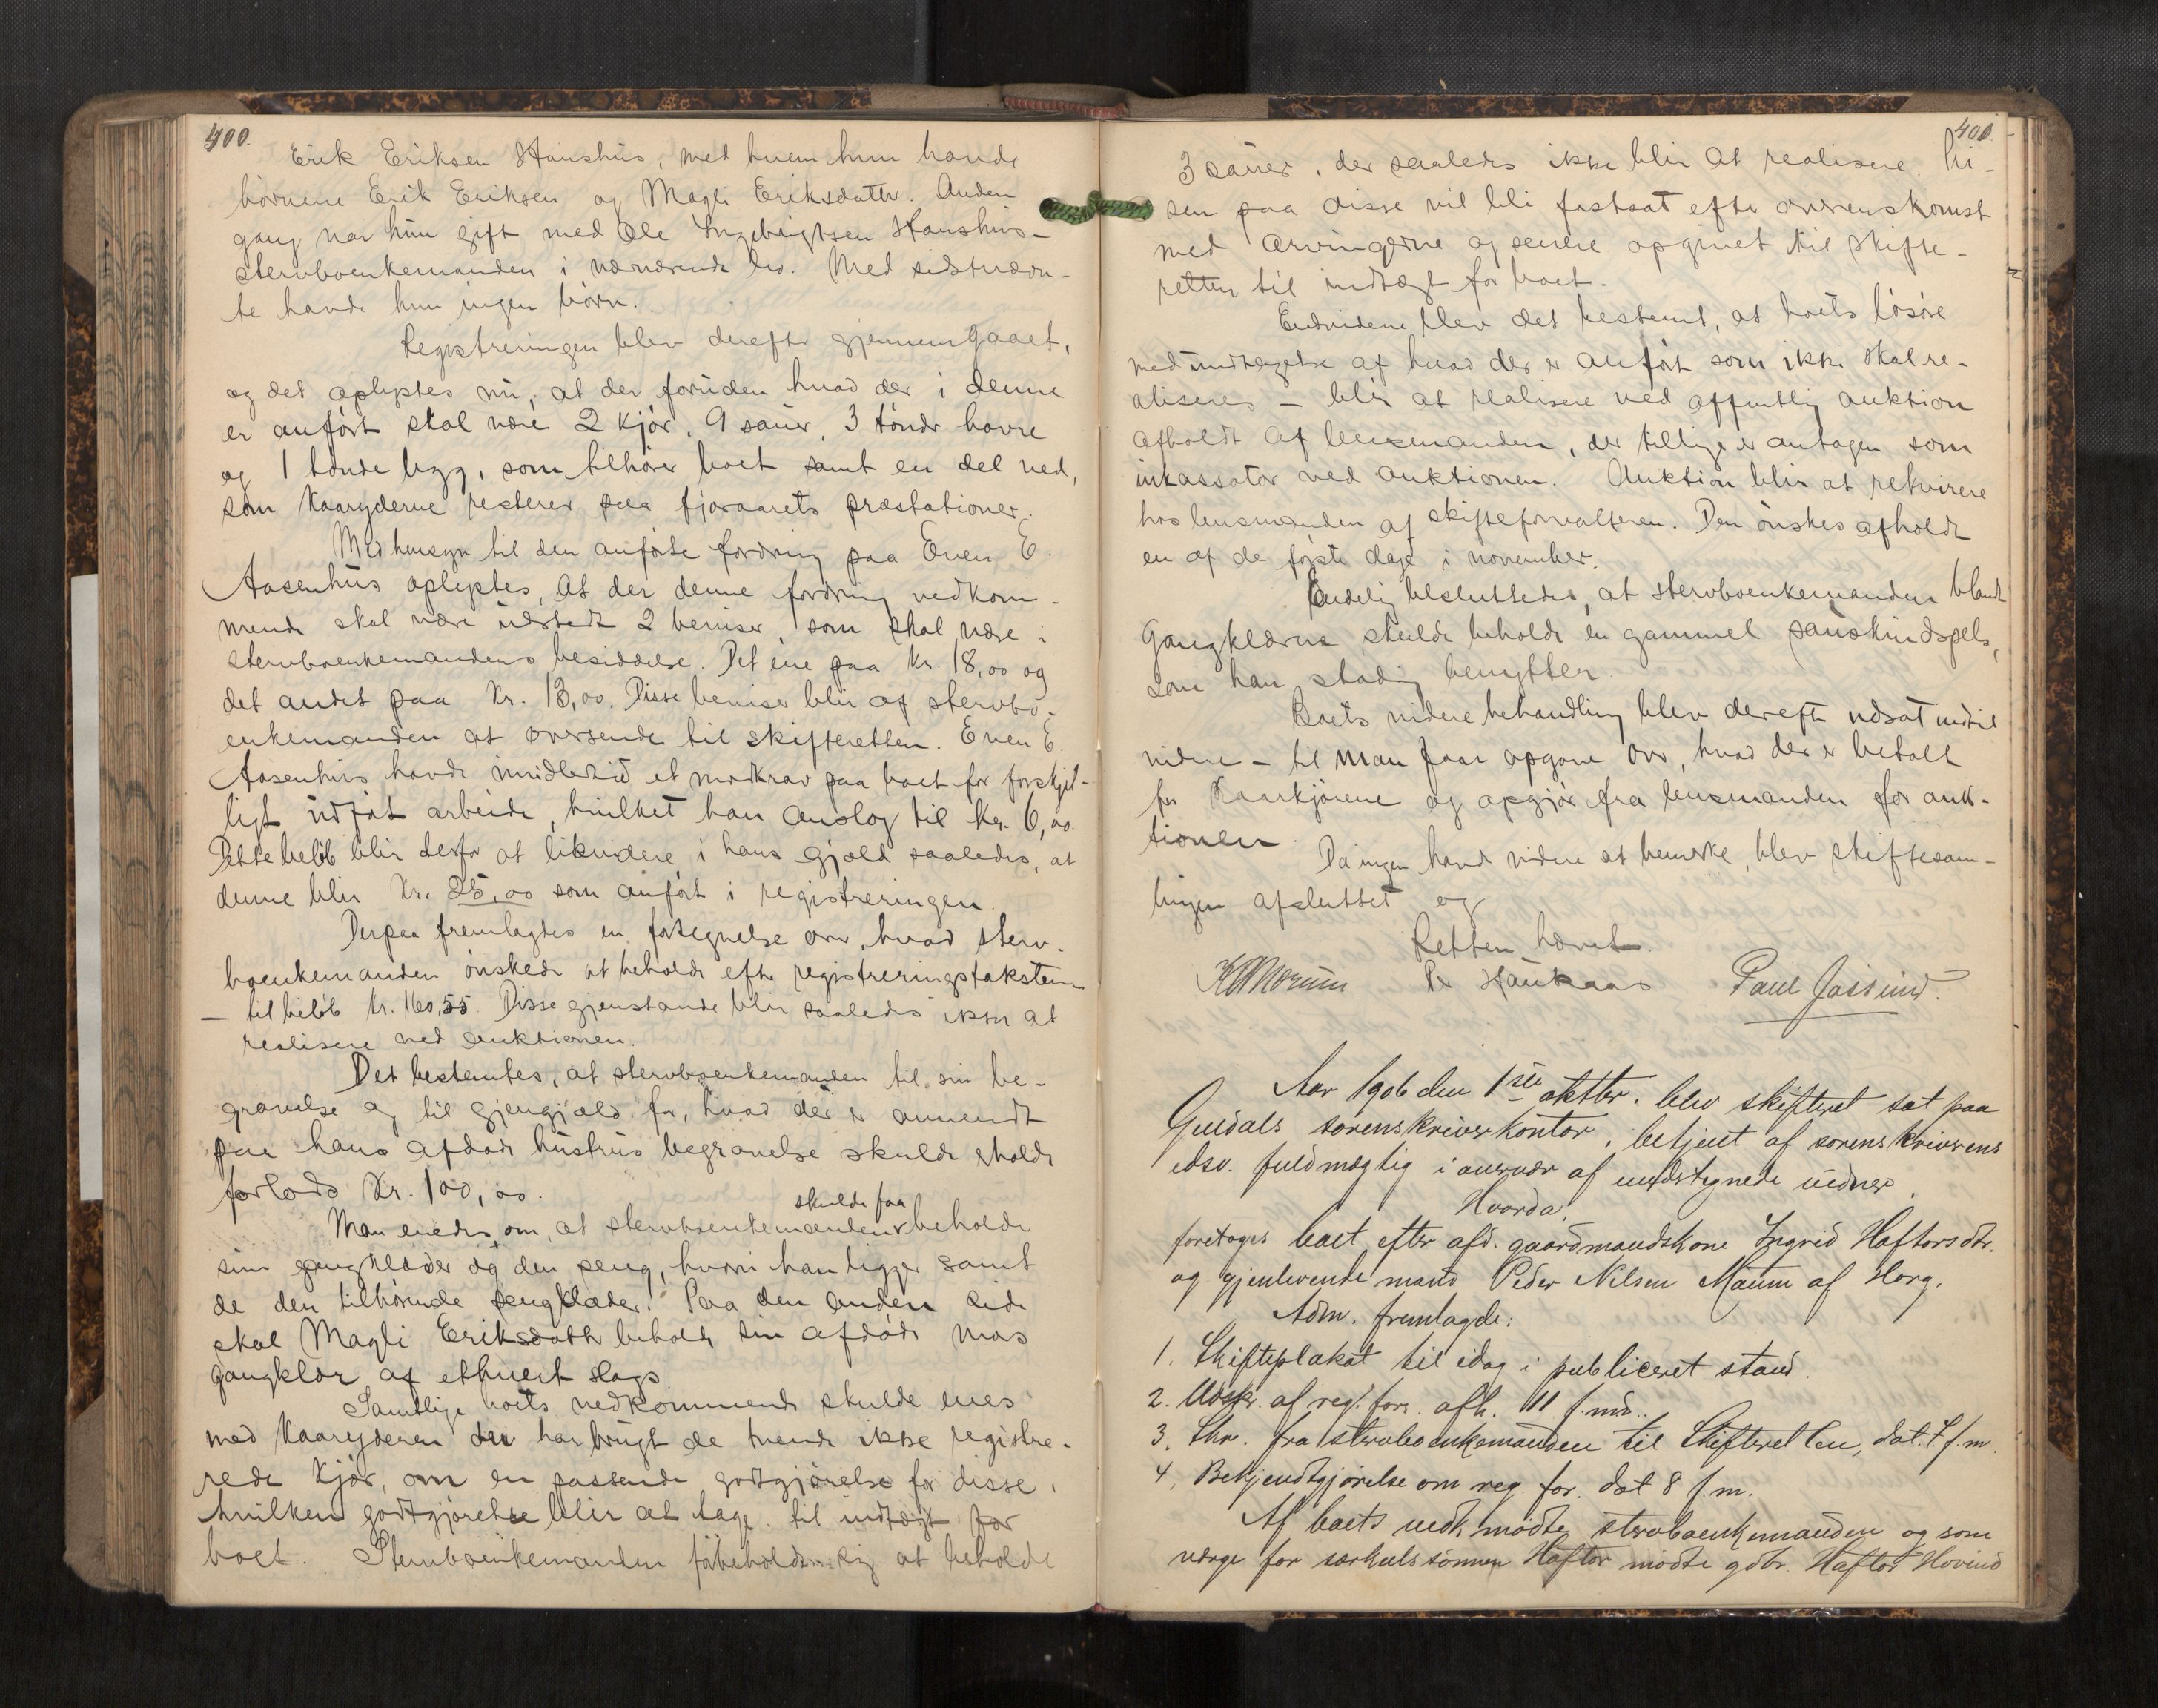 400.
Erik Eriksen Hanshus, med hvem hun havde
børnene Erik Eriksen og Magli Eriksdatter. Anden
gang var hun gift med Ole Ingebrigtsen Hanshus –
stervboenkemanden i nærværende bo. Med sidstnævn-
te havde hun ingen børn.
Registreringen blev derefter gjennemgaaet,
og det oplystes nu, at der foruden hvad der i denne
er anført skal være 2 kjør, 9 sauer, 3 tønder havre
og 1 tønde byg, som tilhører boet samt en del ved,
som kaaryderne resterer paa fjoraarets præstationer.
Med hensyn til den anførte fordring paa Even E.
Aasenhus oplystes, at der denne fordring vedkom-
mende skal være udstedt 2 beviser, som skal være i
stervboenkemandens besiddelse. Det ene paa Kr. 18,00 og
det andet paa Kr. 13,00. Disse beviser blir af stervbo-
enkemanden at oversende til skifteretten. Even E.
Aasenhus havde imidlertid et modkrav paa boet for forskjel-
ligt udført arbeide, hvilket han anslog til Kr. 6,00.
Dette beløb blir derfor at likvidere i hans gjæld saaledes, at
denne blir Kr. 25,00 som anført i registreringen.
Derpaa fremlagdes en fortegnelse over, hvad sterv-
boenkemanden ønskede at beholde efter registreringstaksten –
– til beløb Kr. 160,55. Disse gjenstande blir saaledes ikke at
realisere ved auktionen.
Det bestemtes, at stervboenkemanden til sin be-
gravelse og til gjengjæld for, hvad der er anvendt
paa hans afdøde hustrus begravelse skulde holde
forlods Kr. 100,00.
skulde faa
Man enedes om, at stervboenkemanden beholde
sine gangklæder og den seng, hvori han ligger samt
de den tilhørende sengklæder. Paa den anden side
skal Magli Eriksdatter beholde sin afdøde mors
gangklær af ethvert slags.
Samtlige boets vedkommende skulde enes
med kaaryderen der har brugt de tvende ikke registre-
rede kjør, om en passende godtgjørelse for disse,
hvilken godtgjørelse blir at tage til indtægt for
boet. Stervboenkemanden forbeholder sig at beholde
400
3 sauer, der saaledes ikke blir at realisere. Pri-
sen paa disse vil bli fastsat efter overenskomst
med arvingerne og senere opgivet til skifte-
retten til indtægt for boet.
Endvidere blev det bestemt, at boets løsøre
med undtagelse af hvad der er anført som ikke skal re-
aliseres – blir at realisere ved offentlig auktion
afholdt af lensmanden, der tillige er antagen som
inkassator ved auktionen. Auktion blir at rekvirere
hos lensmanden af skifteforvalteren. Den ønskes afholdt
en af de første dage i november.
Endelig besluttedes, at stervboenkemanden blandt
gangklærne skulde beholde en gammel saueskindspels,
som han stadig benytter.
Boets videre behandling blev derefter udsat indtil
videre – til man faar opgave over, hvad der er betalt
for kaarkjørene og opgjør fra lensmanden for auk-
tionen.
Da ingen havde videre at bemerke, blev skiftesam-
lingen afsluttet og
Retten hævet.
P. Haukaas Paul Jassund.
Aar 1906 den 1ste oktbr. blev skifteret sat paa
Guldals sorenskriverkontor, betjent af sorenskriverens
edsv. fuldmægtig i overvær af undertegnede vidner
Hvorda:
foretoges boet efter afd. gaardmandskone Ingrid Haftorsdtr.
og gjenlevende mand Peder Nilsen Maum af Horg.
Adm. fremlagde:
1. Skifteplakat til idag i publiceret stand.
2. Udskr. af reg. forr. afh. 11 f. md.
3. Skr. fra stervboenkemanden til Skifteretten, dat. 7 f. m.
4. Bekjendtgjørelse om reg. for. dat 8 f. m.
Af boets vedk. mødte stervboenkemanden og som
værge for særkulssønnen Haftor mødte gdbr. Haftor Hovind